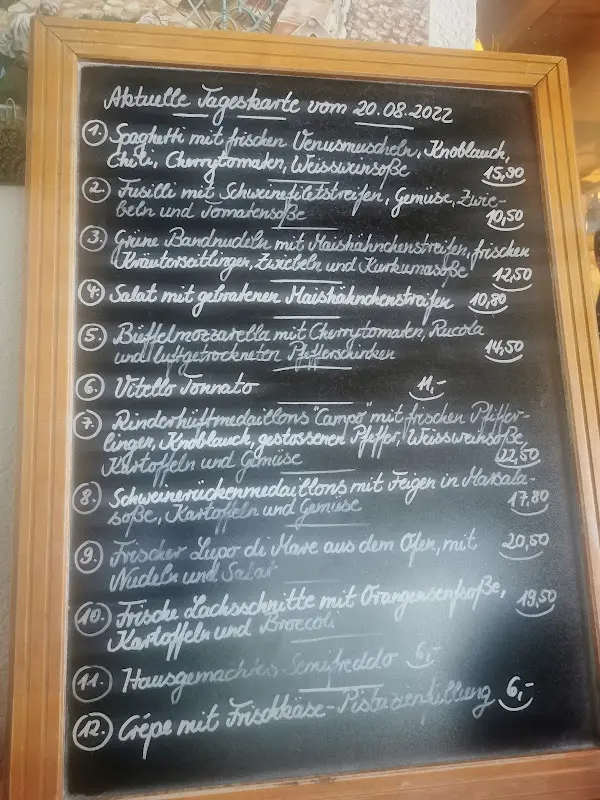 Aktuelle Tageskarte vom 20.08.2022
1. Spaghetti mit frischen Venusmuscheln, Knoblauch,
Chili, Cherrytomaten, Weissweinsoße 15,90
2. Fusilli mit Schweinefiletstreifen, Gemüse, Zwie-
beln und Tomatensoße 10,50
3. Grüne Bandnudeln mit Maishähnchenstreifen, frischen
Kräuterseitlingen, Zwiebeln und Kurkumasoße 12,50
4. Salat mit gebratenen Maishähnchenstreifen 10,80
5. Büffelmozzarella mit Cherrytomaten, Rucola
und luftgetrockneten Pfefferschinken 14,50
6. Vitello Tonnato 11,-
7. Rinderhüftmedaillons "Campo" mit frischen Pfiffer-
lingen, Knoblauch, gestossenen Pfeffer, Weissweinsoße,
Kartoffeln und Gemüse 22,50
8. Schweinerückenmedaillons mit Feigen in Marsala-
soße, Kartoffeln und Gemüse 17,80
9. Frischer Lupo di Mare aus dem Ofen, mit
Nudeln und Salat 20,50
10. Frische Lachsschnitte mit Orangensenfsoße,
Kartoffeln und Broccoli 19,50
11. Hausgemachtes Semifreddo 6,-
12. Crépe mit Frischkäse-Pistazienfüllung 6,-